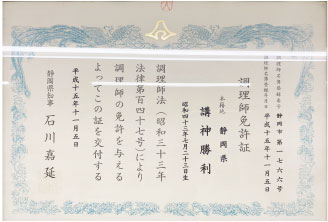 静岡市第一七六六号
平成十五年十一月五日
調理師免許証
本籍地 静岡県
講神勝利
昭和四十三年七月二十三日生
調理師法(昭和三十三年
法律第百四十七号)により
調理師の免許を与える
よってこの証を交付する
平成十五年十一月五日
静岡県知事 石川嘉延